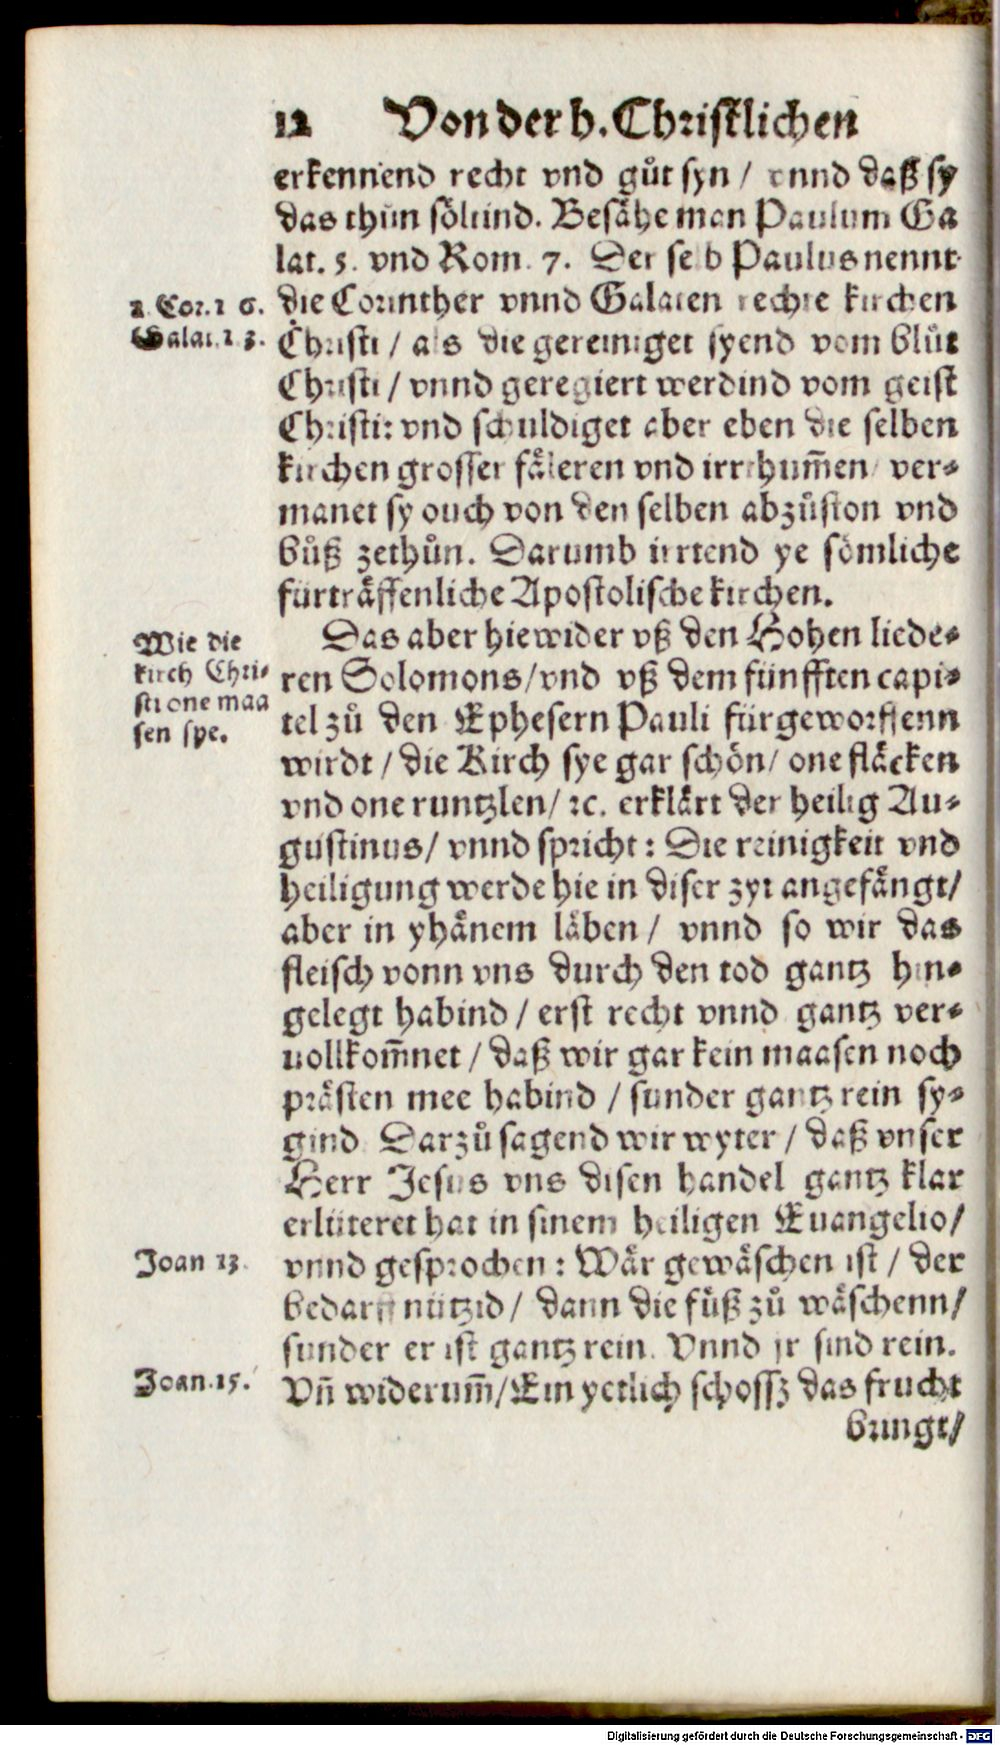 12 Von der h. Christlichen
erkennend recht vnd gůt syn / vnnd daß sy
das thůn söltind. Besähe man Paulum Ga
lat. 5. vnd Rom. 7. Der selb Paulus nennt
2. Cor. 1 6.
Galat. 1 3.
die Corinther vnnd Galaten rechte kirchen
Christi / als die gereiniget syend vom blůt
Christi / vnnd geregiert werdind vom geist
Christi: vnd schuldiget aber eben die selben
kirchen grosser fäleren vnd irrthum̃en / ver⸗
manet sy ouch von den selben abzůston vnd
bůß zethůn. Darumb irrtend ye sömliche
fürträffenliche Apostolische kirchen.
Wie die
kirch Chri⸗
sti one maa
sen sye.
Das aber hiewider vß den Hohen liede⸗
ren Solomons / vnd vß dem fünfften capi⸗
tel zů den Ephesern Pauli fürgeworffenn
wirdt / die Kirch sye gar schön / one fläcken
vnd one runtzlen / ꝛc. erklärt der heilig Au⸗
gustinus / vnnd spricht: Die reinigkeit vnd
heiligung werde hie in diser zyt angefängt /
aber in yhänem läben / vnnd so wir das
fleisch vonn vns durch den tod gantz hin⸗
gelegt habind / erst recht vnnd gantz ver⸗
uollkom̃net / daß wir gar kein maasen noch
prästen mee habind / sunder gantz rein sy⸗
gind. Darzů sagend wir wyter / daß vnser
Herr Jesus vns disen handel gantz klar
erlüteret hat in sinem heiligen Euangelio /
Joan 13.
vnnd gesprochen: Wär gewäschen ist / der
bedarff nützid / dann die füß zů wäschenn /
sunder er ist gantz rein. Vnnd jr sind rein.
Joan. 15.
Vñ widerum̃ / Ein yetlich schossz das frucht
bringt /
Digitalisierung gefördert durch die Deutsche Forschungsgemeinschaft - DFG